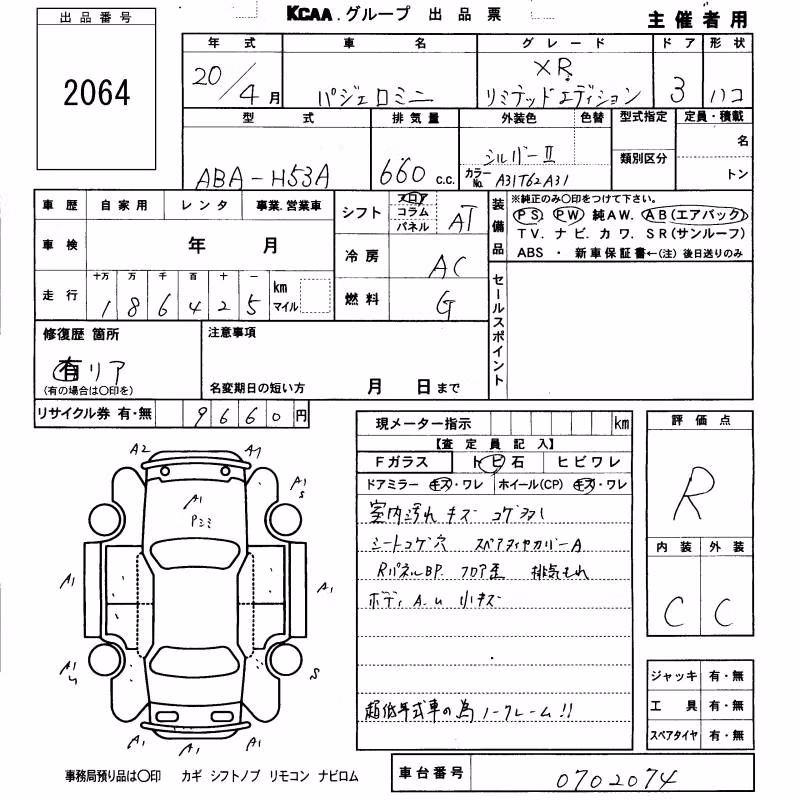 出品番号
2064
KCAA.グループ 出品票
主催者用
年式 車名 グレード ドア 形状
20/4月 パジェロミニ XR リミテッドエディション 3 ハコ
型式 排気量 外装色 色替 型式指定 定員・積載
ABA-H53A 660 c.c. シルバーⅡ 名
カラーNo. A31T62A31 類別区分 トン
車歴 自家用 レンタ 事業.営業車
車検 年 月
走行 十万 万 千 百 十 一 km マイル
186425
シフト フロア コラム パネル AT
冷房 AC
燃料 G
装備品 ※純正のみ〇印をつけて下さい。
PS PW 純AW. AB(エアバック)
TV. ナビ. カワ. SR(サンルーフ)
ABS ・ 新車保証書←(注) 後日送りのみ
セールスポイント
修復歴 箇所
有 リア
(有の場合は〇印を)
注意事項
名変期日の短い方 月 日まで
リサイクル券 有・無 9660円
現メーター指示 km
【査定員記入】
Fガラス トビ石 ヒビワレ
ドアミラー キズ・ワレ ホイール(CP) キズ・ワレ
室内汚れ キズ コゲ
シートコゲ穴 スペアタイヤカバーA
RパネルBP. フロア歪 排気もれ
ボディ A.u 小キズ
超低年式車の為ノークレーム!!
評価点
R
内装 外装
C C
ジャッキ 有・無
工具 有・無
スペアタイヤ 有・無
A2 A1
A1 S
A1
A1 A1
A1 S
A1 A1 A1
事務局預り品は〇印 カギ シフトノブ リモコン ナビロム
車台番号 0702074